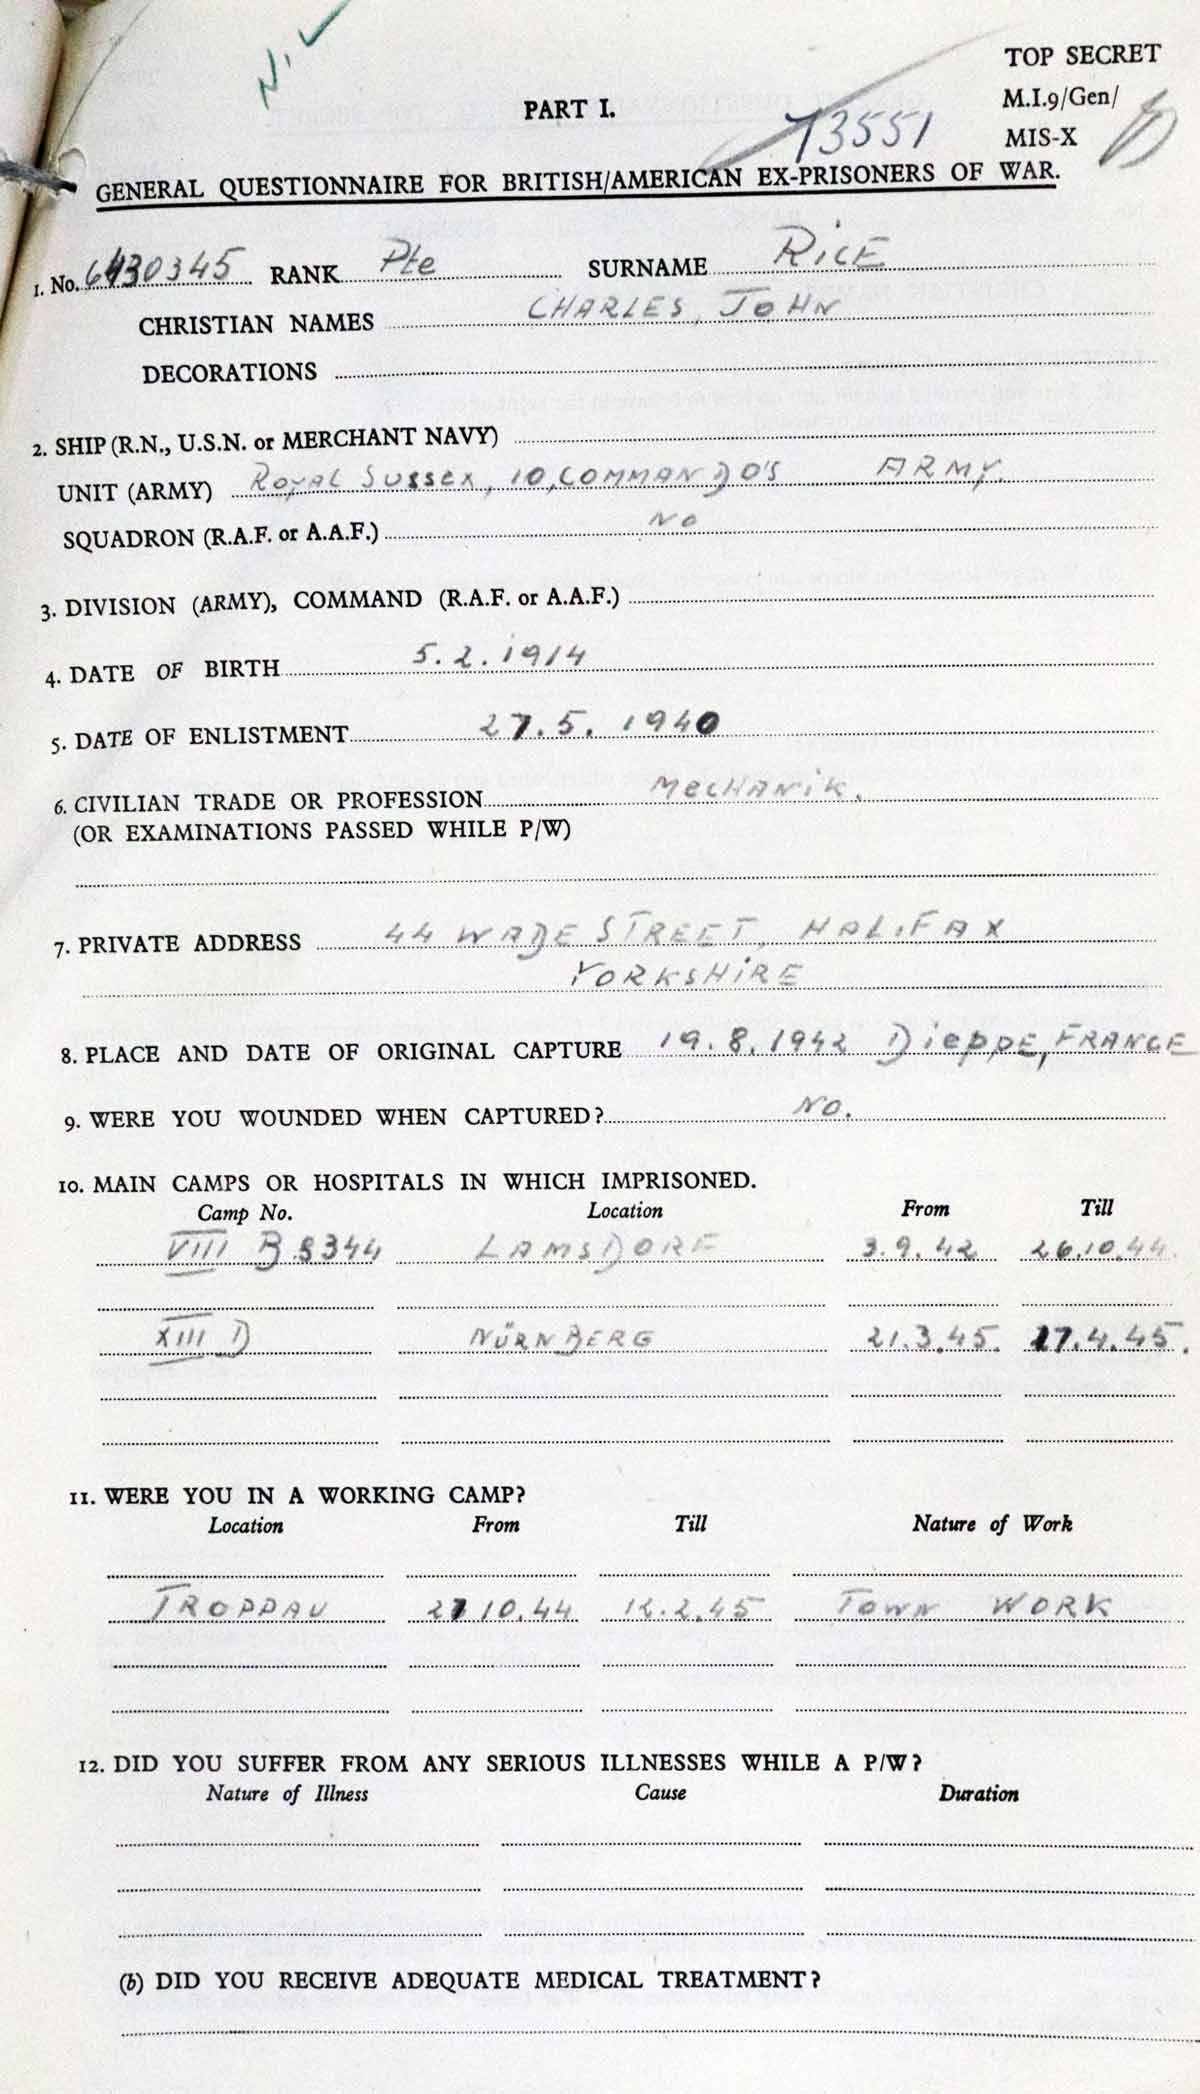 N.
TOP SECRET
M.I.9/Gen/
PART I. 73551
MIS-X
GENERAL QUESTIONNAIRE FOR BRITISH/AMERICAN EX-PRISONERS OF WAR.
1. No. 6430345 RANK Pte SURNAME RICE
CHRISTIAN NAMES CHARLES, JOHN
DECORATIONS
2. SHIP (R.N., U.S.N. or MERCHANT NAVY)
UNIT (ARMY) ROYAL SUSSEX, 10, COMMANDO'S ARMY.
SQUADRON (R.A.F. or A.A.F.) NO
3. DIVISION (ARMY), COMMAND (R.A.F. or A.A.F.)
4. DATE OF BIRTH 5.2.1914
5. DATE OF ENLISTMENT 27.5.1940
6. CIVILIAN TRADE OR PROFESSION MECHANIK.
(OR EXAMINATIONS PASSED WHILE P/W)
7. PRIVATE ADDRESS 44 WADE STREET, HALIFAX
YORKSHIRE
8. PLACE AND DATE OF ORIGINAL CAPTURE 19.8.1942 DiEPPE, FRANCE
9. WERE YOU WOUNDED WHEN CAPTURED? NO.
10. MAIN CAMPS OR HOSPITALS IN WHICH IMPRISONED.
Camp No. Location From Till
VIII B 344 LAMSDORF 3.9.42 26.10.44.
XIII D NÜRNBERG 21.3.45. 17.4.45.
11. WERE YOU IN A WORKING CAMP?
Location From Till Nature of Work
TROPPAU 27 10.44 12.2.45 TOWN WORK
12. DID YOU SUFFER FROM ANY SERIOUS ILLNESSES WHILE A P/W?
Nature of Illness Cause Duration
(b) DID YOU RECEIVE ADEQUATE MEDICAL TREATMENT?